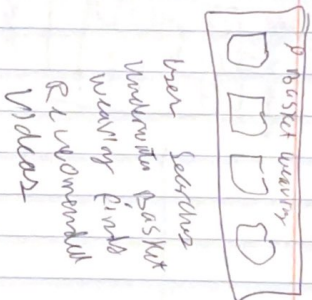 Basket weaving
User Searches
Underwater Basket
weaving finds
Recommended
Videos